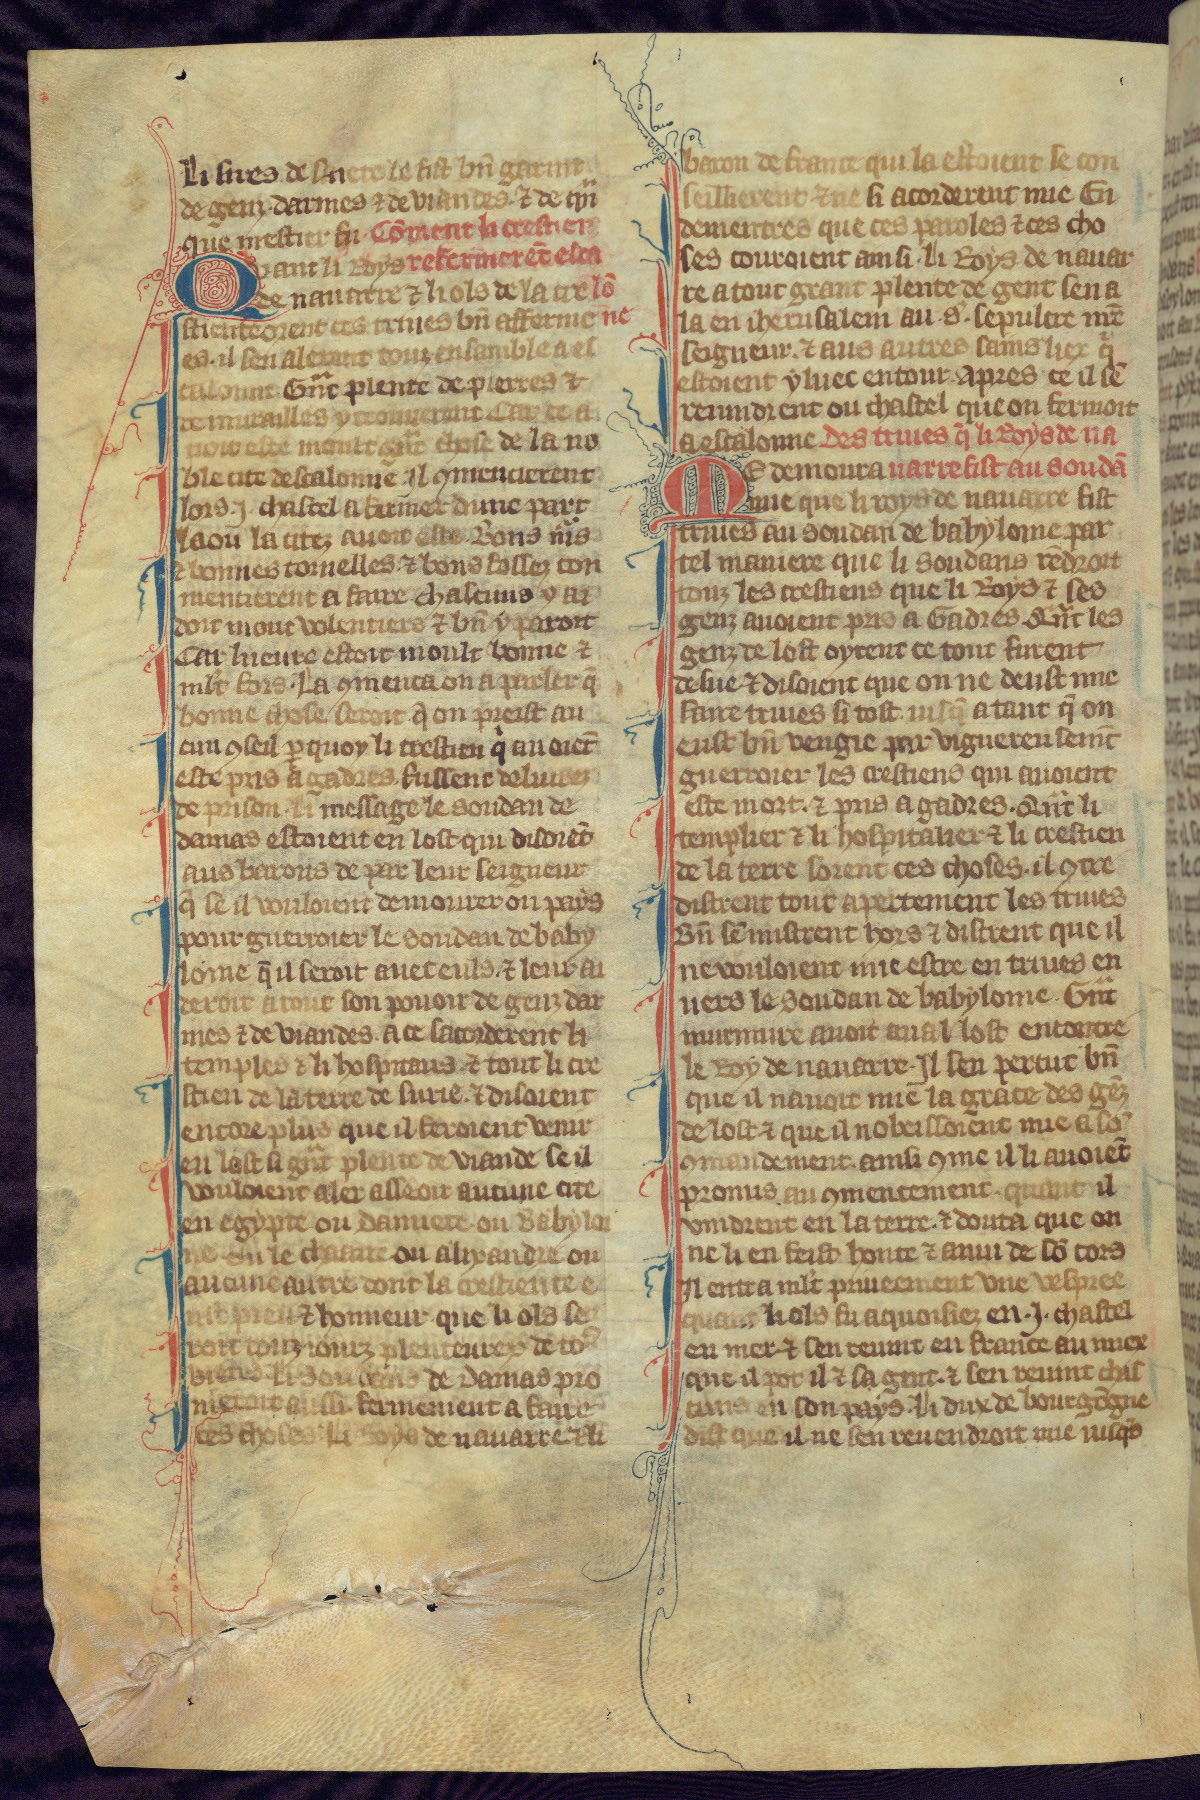 li sires de saiete le fist bn̄ garnir
de genz darmes ⁊ de viandes. ⁊ de qñ
que mestier fu. Cōment li crestien
Quant li Roys refermerēt esca
de nauarre ⁊ li ols de la cre lō
stienté orent ces triues bn̄ afferme ne
es. il sen alerent touz ensamble a es
calonne. Gñt plente de pierres ⁊
de murailles y trouuerent. Car ce a
uoit este moult gñt chose de la no
ble cite descalonne. Il ꝯmencierent
lors .j. chastel a fermer dune part
la ou la citez auoit este. Bons murs
⁊ bonnes tornelles ⁊ bons fossez con
mencierent a faire. Chascuns y ai
doit mout volentiers ⁊ bn̄ y paroit
Car lueure estoit moult bonne ⁊
ml't fors. La ꝯmenca on a parler q̄
bonne chose seroit q̄ on preist au
cun ꝯseil ꝑquoy li crestien q̇ auoiēt
este pris a gadres. fussent deliurez
de prison. Li message le soudan de
damas estoient en lost qui disoiēt
aus barons de par leur seigneur
q̄ se il vouloient demourer ou pays
pour guerroier le soudan de baby
lóine q̄ il seroit auec euls. ⁊ leur ai
deroit a tout son pouoir de genz dar
mes ⁊ de viandes. a ce sacorderent li
temples ⁊ li hospitaus. ⁊ tout li cre
stien de la terre de surie. ⁊ disoient
encore plus que il feroient venir
en lost si gñt plente de viande se il
vouloient aler asseoir aucune cite
en egypte ou damiete. ou Babyloi
ne ou le chaaire ou alixandre ou
aucune autre dont la crestiente e
ust preu ⁊ honneur. que li ols se
roit touz iourz plenteurex de to9
biens. Li soudans de damas pro
metoit aussi fermement a faire
ces choses. Li Roys de nauarre. ⁊ li
baron de france qui la estoient se con
seillierent. ⁊ ne si acorderent mie. En
dementres que ces paroles ⁊ ces cho
ses couroient ainsi. li Roys de nauar
re a tout grant plente de gent sen a
la en iherusalem au .s'. sepulcre mr̄e
seigneur. ⁊ aus autres sains liex q̇
estoient yluec entour. Apres ce il se
reuindrent ou chastel que on fermoit
a escalonne. Des triues q̄ li Roys de na
NE demoura uarre fist au soudā
mie que li roys de nauarre fist
triues au soudan de babyloine par
tel maniere que li soudans rēdroit
touz les crestiens que li Roys ⁊ ses
genz auoient pris a Gadres. Qñt les
genz de lost oyrent ce tout furent
desue. ⁊ disoient que on ne deust mie
faire triues si tost. iusq̄ a tant q̄ on
eust bn̄ vengie par viguereusemt
guerroier les crestiens qui auoient
este mort. ⁊ pris a gadres. Qñt li
templier ⁊ li hospitalier ⁊ li crestien
de la terre sorent ces choses. il ꝯtre
distrent tout apertement les triues
Bn̄ se mistrent hors ⁊ distrent que il
ne vouloient mie estre en triues en
uers le soudan de babyloine. Gñt
murmure auoit aual lost encontre
le Roy de nauarre. Il sen percut bn̄
que il nauoit mie la grace des gēz
de lost ⁊ que il nobeissoient mie a so9
ꝯmandement. ainsi ꝯme il li auoiēt
promis. au ꝯmencement. quant il
vindrent en la terre. ⁊ douta que on
ne li en feist honte ⁊ anui de sō cors
Il entra ml't priueement vne vespree
quant li ols fu aquoisiez en .j. chastel
en mer. ⁊ sen reuint en france au miex
que il pot il ⁊ sa gent. ⁊ sen reuint chas
cuns en son pays. Li dux de bourgōgne
dist que il ne sen reuendroit mie iusq̄s